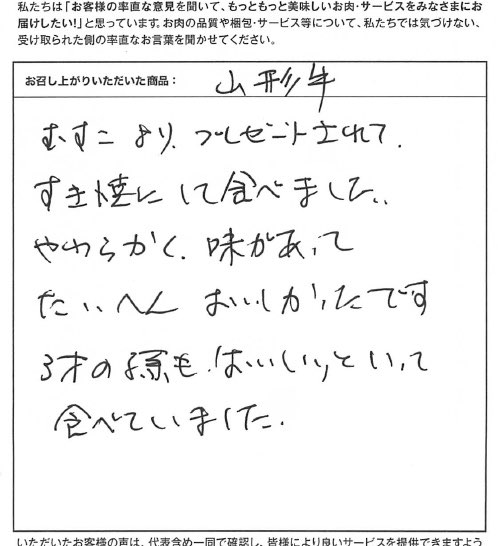 私たちは「お客様の率直な意見を聞いて、もっともっと美味しいお肉・サービスをみなさまにお
届けしたい!」と思っています。お肉の品質や梱包・サービス等について、私たちでは気づけない、
受け取られた側の率直なお言葉を聞かせてください。
お召し上がりいただいた商品: 山形牛
むすこより、プレゼントされて、
すき焼にして食べました。
やわらかく、味があって
たいへんおいしかったです
3才の孫も「おいしい」といって
食べていました。
いただいたお客様の声は、代表含め一同で確認し、皆様により良いサービスを提供できますよう